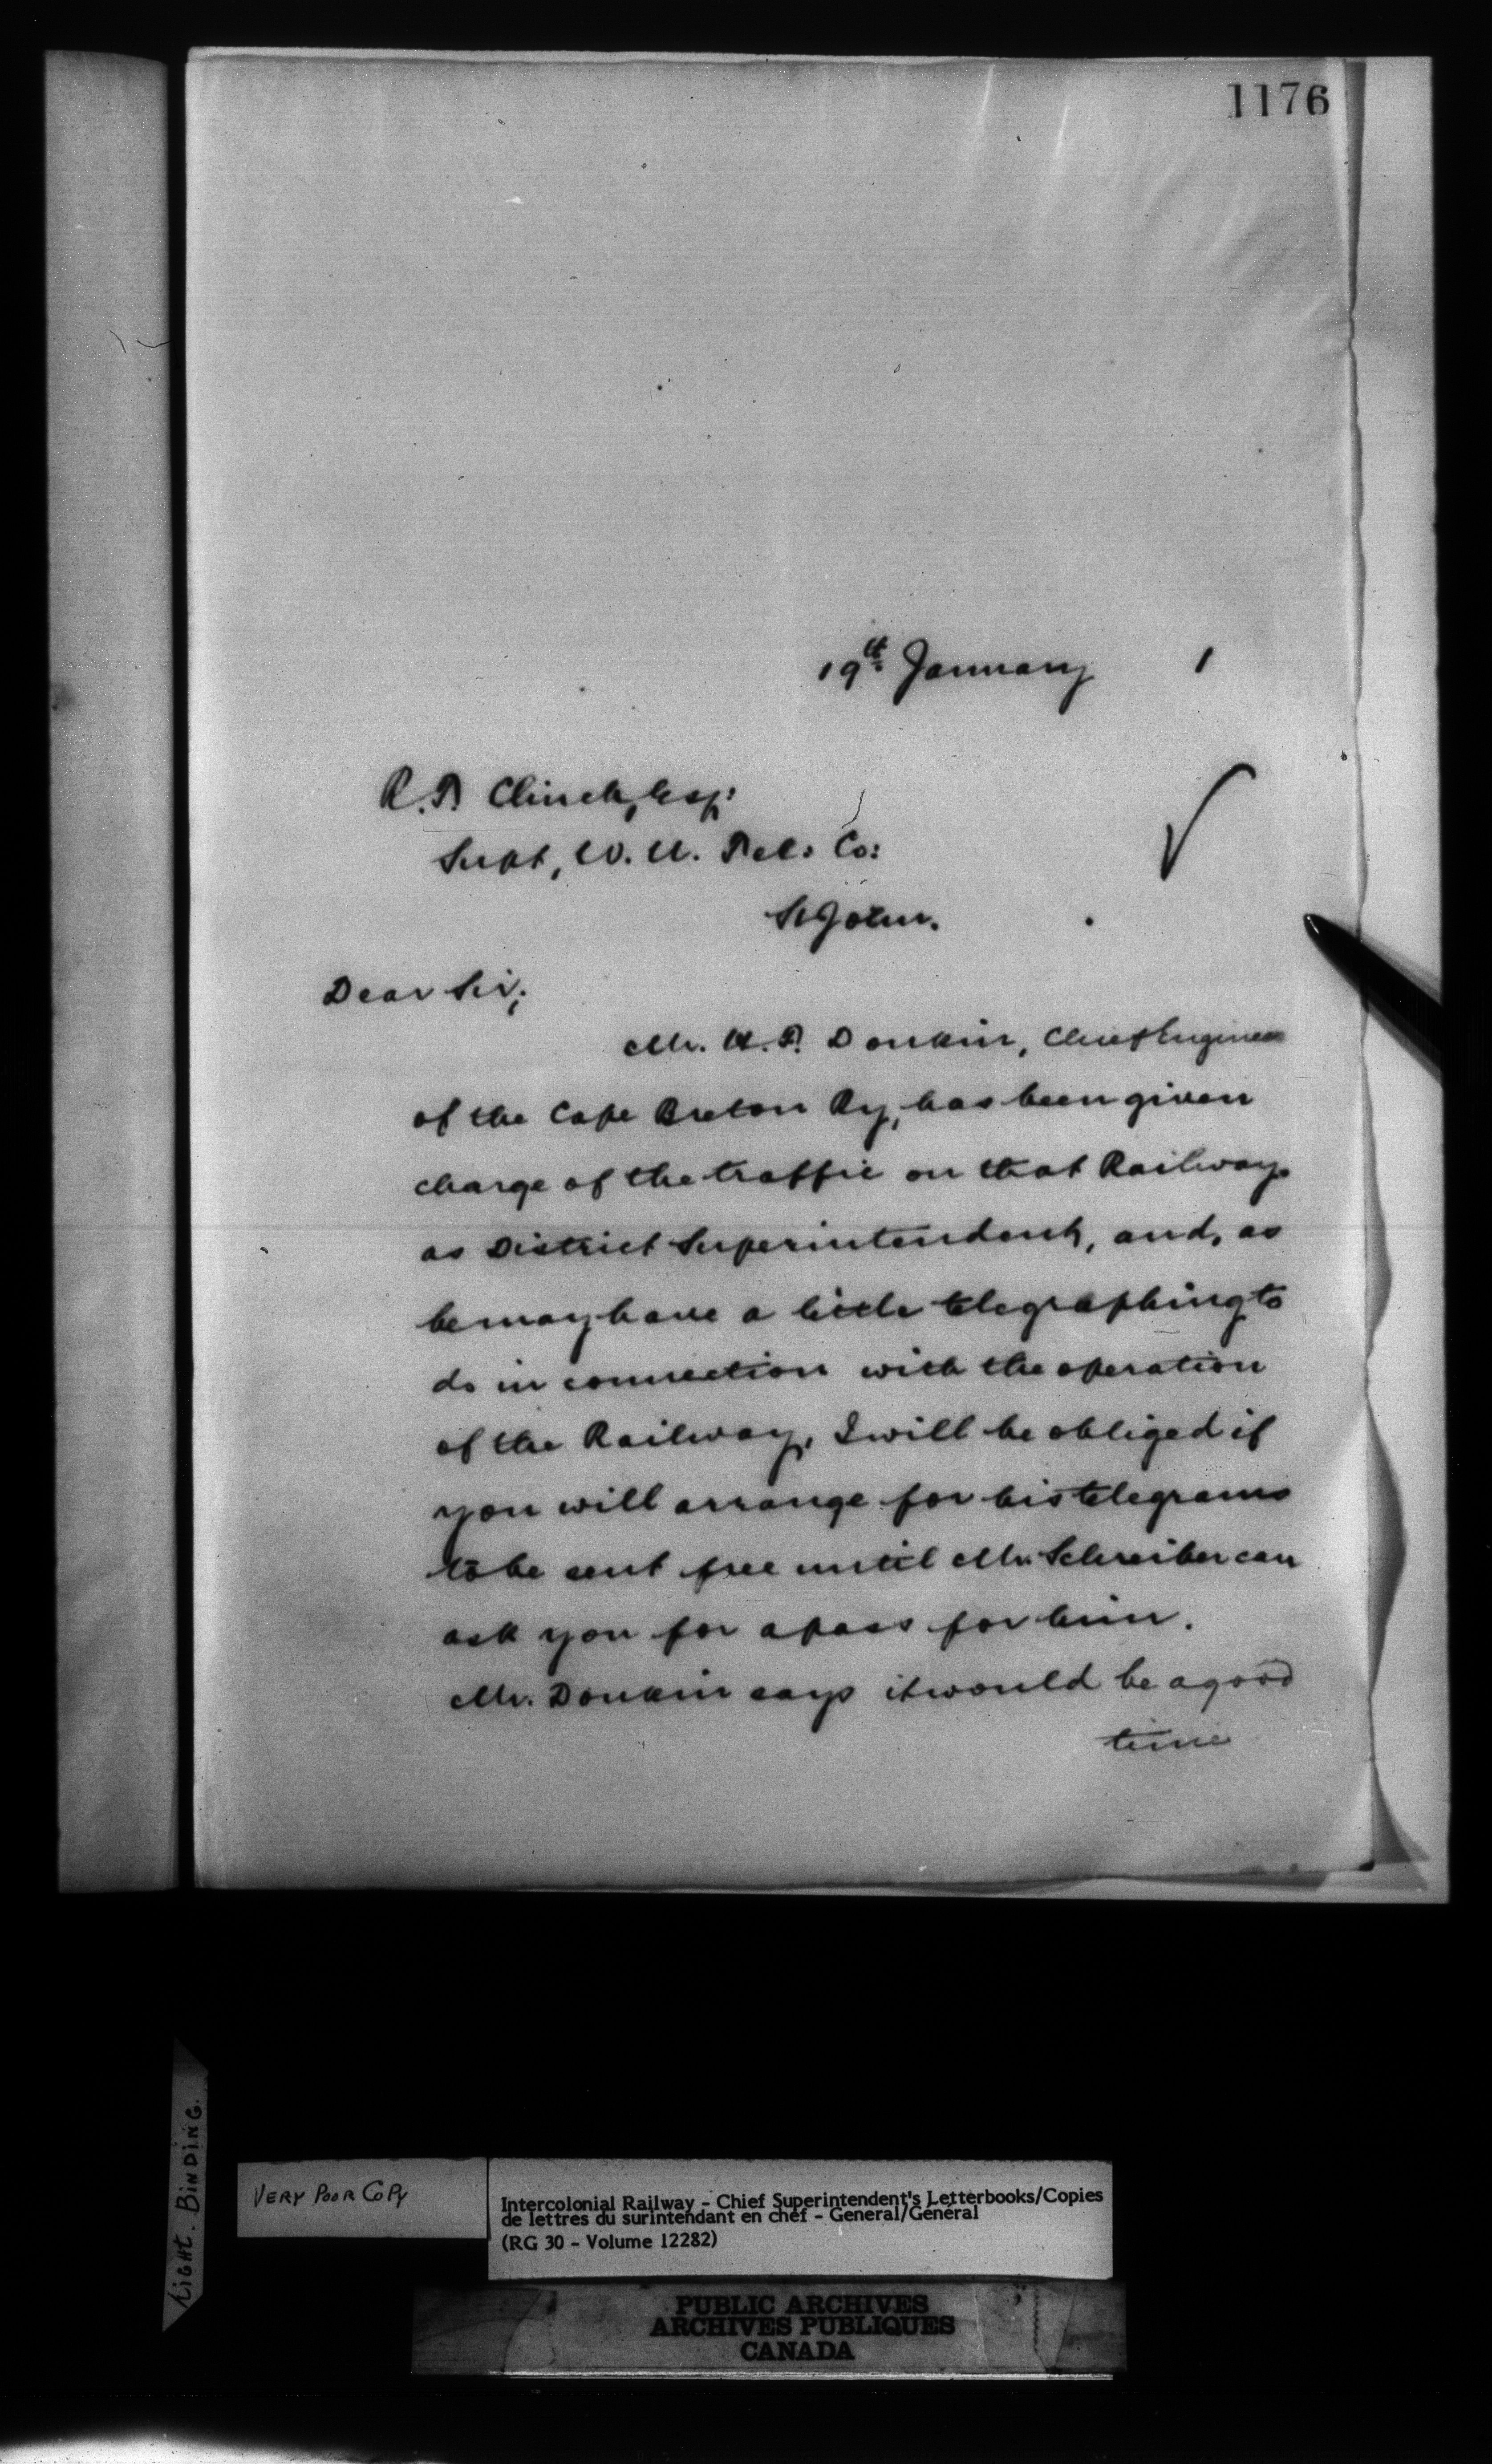 1176
19th January 1
R. T. Clinch, Esq:
Supt, W. U. Tel: Co:
St John.
Dear Sir;
Mr. H. F. Donkin, Chief Engineer
of the Cape Breton Ry, has been given
charge of the traffic on that Railway
as District Superintendent, and, as
he may have a little telegraphing to
do in connection with the operation
of the Railway, I will be obliged if
you will arrange for his telegrams
to be sent free until Mr. Schreiber can
ask you for a pass for him.
Mr. Donkin says it would be a good
time
TIGHT. BINDING.
VERY POOR COPY
Intercolonial Railway - Chief Superintendent's Letterbooks/Copies
de lettres du surintendant en chef - General/Général
(RG 30 - Volume 12282)
PUBLIC ARCHIVES
ARCHIVES PUBLIQUES
CANADA